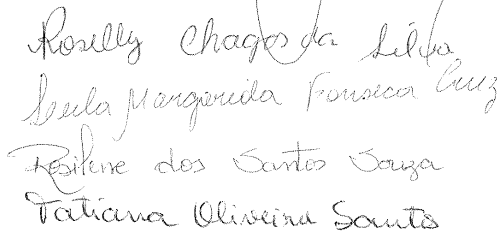 Roselly Chagas da Silva
Leila Margarida Fonseca Cruz
Rosilene dos Santos Souza
Tatiana Oliveira Santos